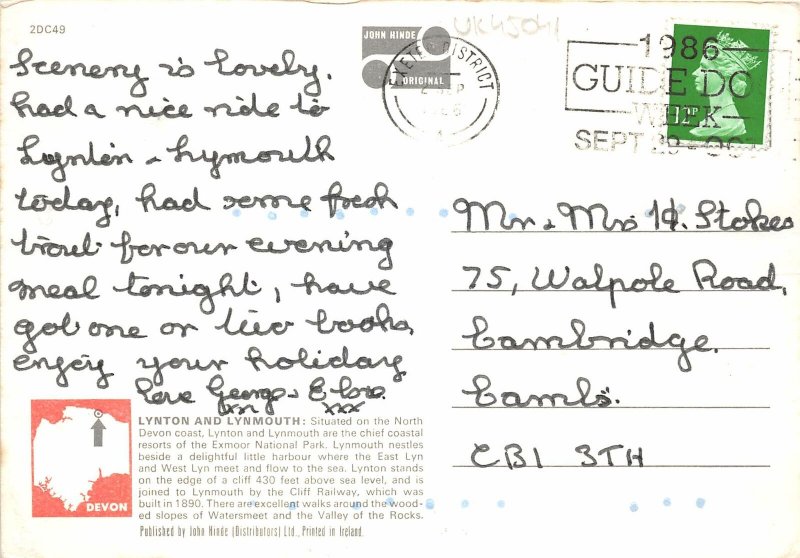 2DC49
UK45041
JOHN HINDE
ORIGINAL
EXETER DISTRICT
1986
GUIDE DOG
WEEK
SEPT 29 - OCT
12P
Scenery is lovely.
had a nice ride to
Lynton & Lymouth
today, had some fresh
trout for our evening
meal tonight, have
got one or two books,
enjoy your holiday
Love George &
xxx xxx
Mr & Mrs H. Stokes
75, Walpole Road,
Cambridge.
Cambs.
CB1 3TH
LYNTON AND LYNMOUTH: Situated on the North
Devon coast, Lynton and Lynmouth are the chief coastal
resorts of the Exmoor National Park. Lynmouth nestles
beside a delightful little harbour where the East Lyn
and West Lyn meet and flow to the sea. Lynton stands
on the edge of a cliff 430 feet above sea level, and is
joined to Lynmouth by the Cliff Railway, which was
built in 1890. There are excellent walks around the wood-
ed slopes of Watersmeet and the Valley of the Rocks.
Published by John Hinde (Distributors) Ltd., Printed in Ireland.
DEVON